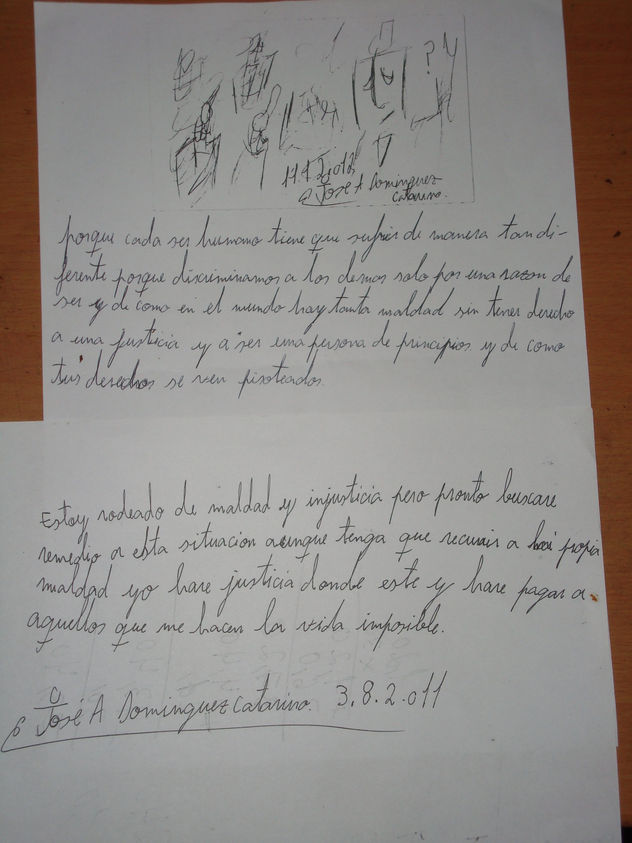 ?
11.1.2.012
José A Dominguez
Catarino.
porque cada ser humano tiene que sufrir de manera tan di-
ferente porque discriminamos a los demas solo por una razon de
ser y de como en el mundo hay tanta maldad sin tener derecho
a una justicia y a ser una persona de principios y de como
tus derechos se ven pisoteados.
Estoy rodeado de maldad y injusticia pero pronto buscare
remedio a esta situacion aunque tenga que recurir a propia
maldad yo hare justicia donde este y hare pagar a
aquellos que me hacen la vida imposible.
José A Dominguez Catarino. 3.8.2.011